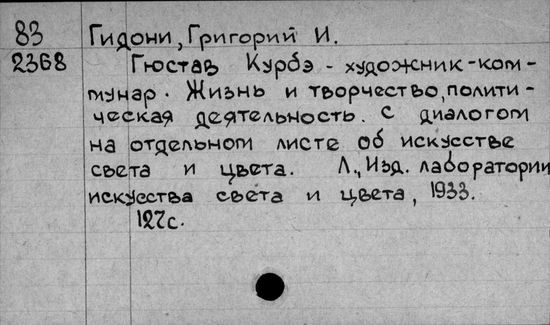 83 Гидони, Григорий И.
2368 Гюстав Курбэ - художник-ком-
мунар. Жизнь и творчество, полити-
ческая деятельность. С диалогом
на отдельном листе об искусстве
света и цвета. Л., Изд. лаборатории
искусства света и цвета, 1933.
127с.